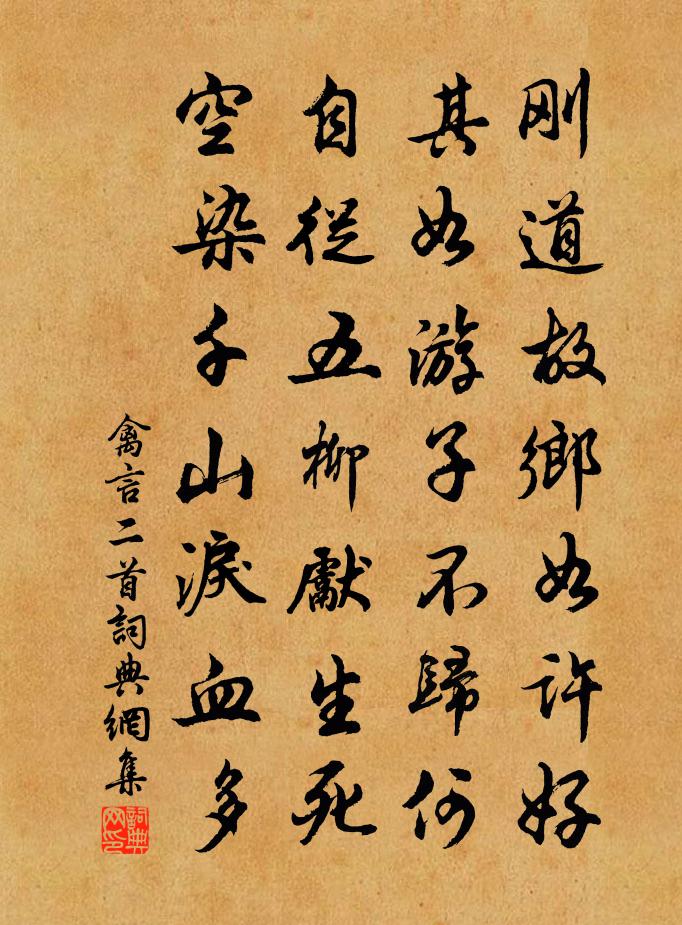 刚道故鄉如许好
其如游子不歸何
自從五柳獻生死
空染千山淚血多
禽言二首詞典網集
詞典网印